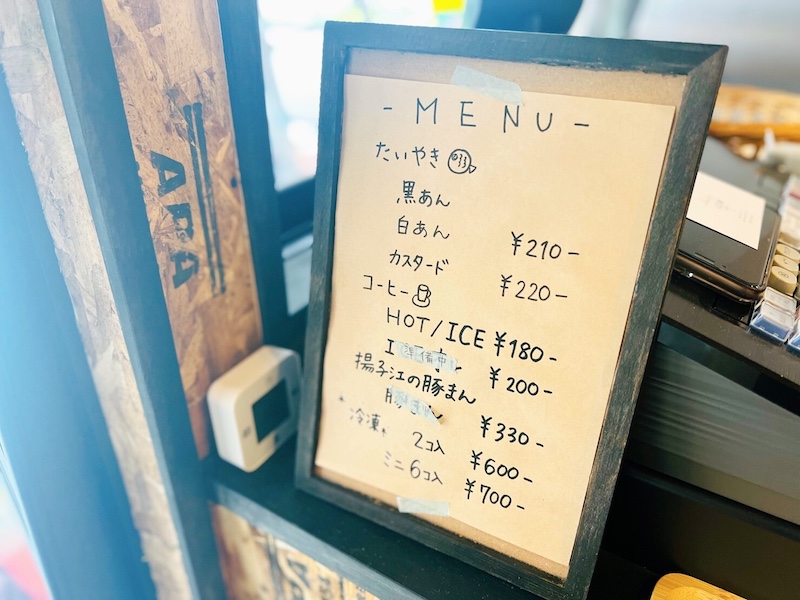 - MENU -
たいやき
黒あん
白あん ¥210-
カスタード ¥220-
コーヒー
HOT/ICE ¥180-
I 準備中 ¥200-
揚子江の豚まん
豚まん ¥330-
冷凍 2コ入 ¥600-
ミニ6コ入 ¥700-